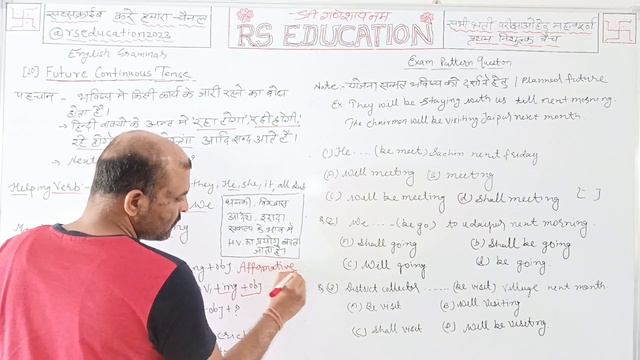 सब्सक्राईब करे हमारा चैनल
@rseducation2023
श्री गणेशाय नमः
RS EDUCATION
सभी भर्ती परीक्षाओ हेतु महत्वपूर्ण
English Grammar
Exam Pattern Question
[10] Future Continuous Tense
पहचान - भविष्य में किसी कार्य के जारी रहने का बोध
होता है।
→ हिन्दी वाक्यो के अन्त में 'रहा होगा', रही होगी,
रहे होंगे आदि शब्द आते हैं।
Helping Verb - they, He, she, it, all
We
धमकी, विश्वास
आदेश, इरादा
के भाव में
H.V. का प्रयोग
जाता है।
ng + obj Affirmative
V₁ + ing + obj
+ obj + ?
Note:- योजना सम्मत भविष्य को दर्शाने हेतु / Planned future
Ex They will be staying with us till next morning.
The chairman will be visiting Jaipur next month.
(1) He .... (be meet) Sachin next friday
(A) Well meeting (B) meeting
(C) will be meeting (d) shall meeting [ ]
Q.(2) We .... (be go) to Udaipur next morning.
(a) Shall going (b) Shall be going
(c) Well going (d) be going
Q.(3) District collector ...... (be visit) village next month.
(A) Be visit (B) Will visiting
(C) Shall visit (D) Will be visiting.